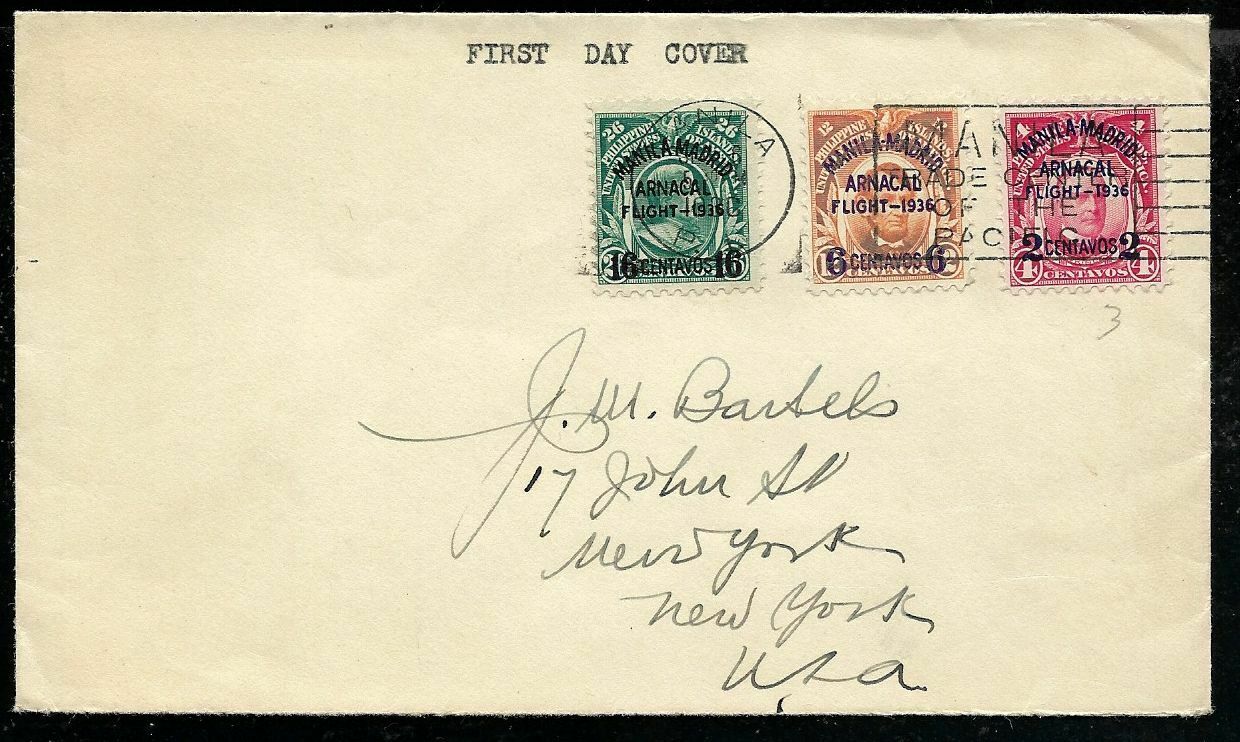 FIRST DAY COVER
26 26
PHILIPPINE ISLANDS
MANILA-MADRID
ARNACAL
FLIGHT-1936
16 CENTAVOS 16
12
PHILIPPINE ISLANDS
MANILA-MADRID
ARNACAL
FLIGHT-1936
6 CENTAVOS 6
4 4
MANILA-MADRID
ARNACAL
FLIGHT-1936
2 CENTAVOS 2
4 CENTAVOS 4
MANILA
MANILA
TRADE CENTER
OF THE
PACIFIC
3
J. M. Bartels
17 John St
New York
New York
USA